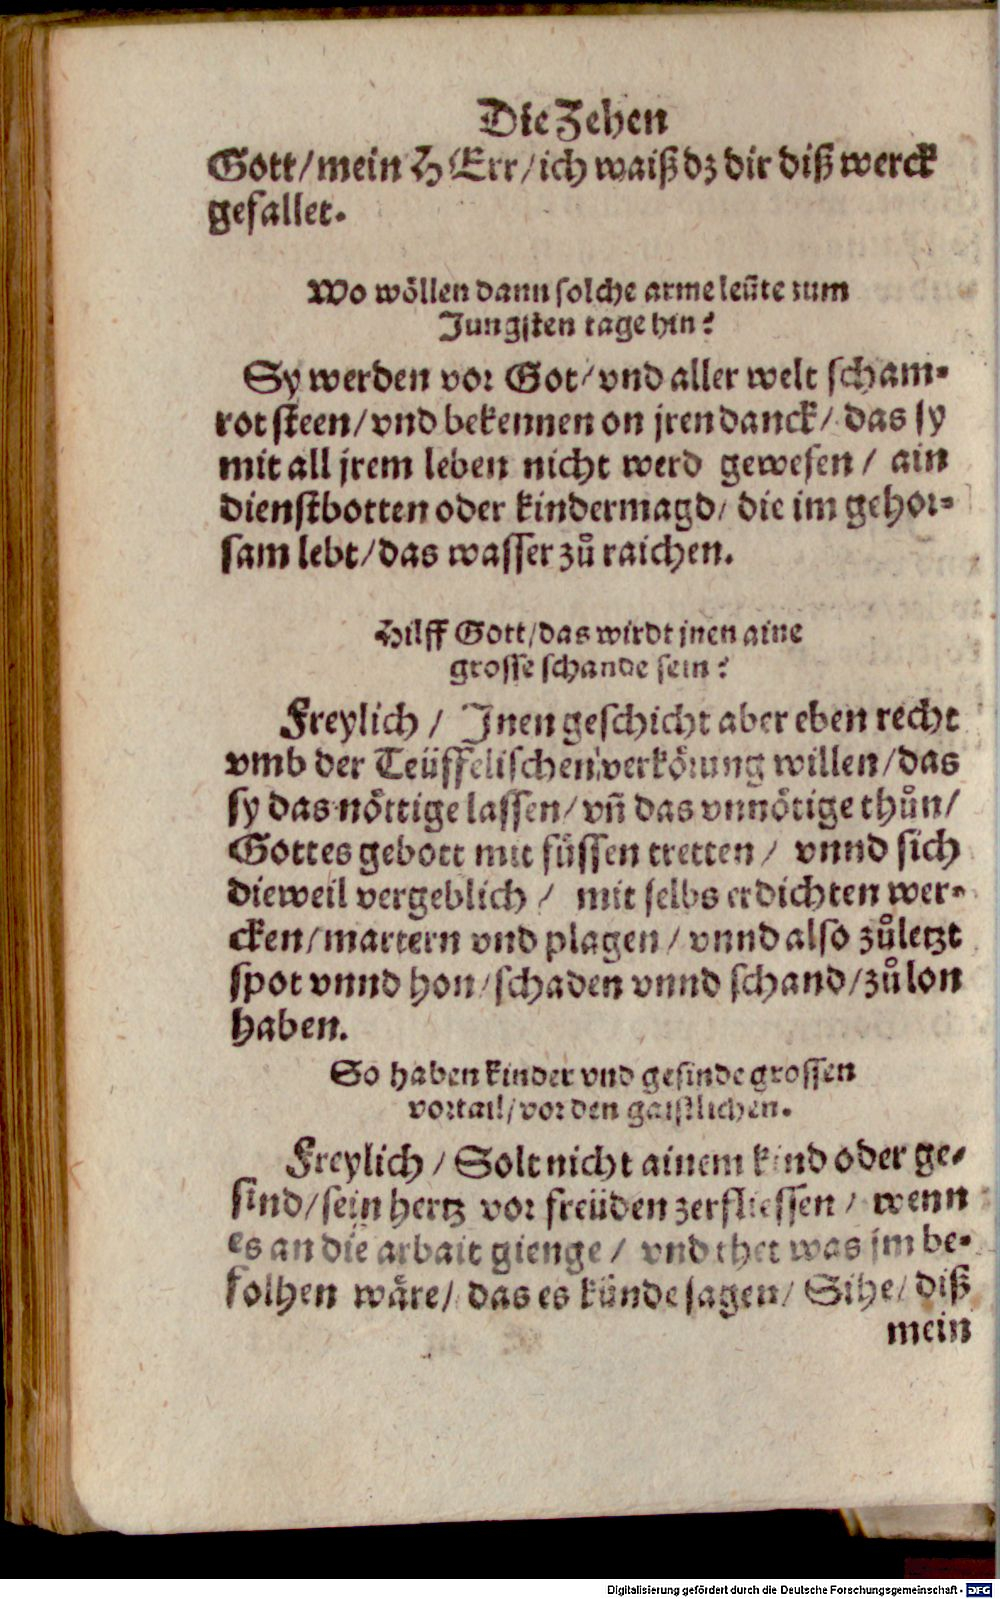 Die Zehen
Gott/mein HErr/ich waiß dz dir diß werck
gefallet.
Wo wöllen dann solche arme leüte zum
Jungsten tage hin?
Sy werden vor Got/vnd aller welt scham-
rot steen/vnd bekennen on jren danck/das sy
mit all jrem leben nicht werd gewesen/ ain
dienstbotten oder kindermagd/die im gehor-
sam lebt/das wasser zů raichen.
Hilff Gott/das wirdt jnen aine
grosse schande sein?
Freylich/ Jnen geschicht aber eben recht
vmb der Teüffelischen verkörung willen/das
sy das nöttige lassen/vñ das vnnötige thůn/
Gottes gebott mit füssen tretten/ vnnd sich
dieweil vergeblich/ mit selbs erdichten wer-
cken/martern vnd plagen/vnnd also zůletzt
spot vnnd hon/schaden vnnd schand/zů lon
haben.
So haben kinder vnd gesinde grossen
vortail/vor den gaistlichen.
Freylich/Solt nicht ainem kind oder ge-
sind/sein hertz vor freüden zerfliessen/ wenn
es an die arbait gienge/ vnd thet was jm be-
folhen wäre/ das es künde sagen/ Sihe/ diß
mein
Digitalisierung gefördert durch die Deutsche Forschungsgemeinschaft - DFG